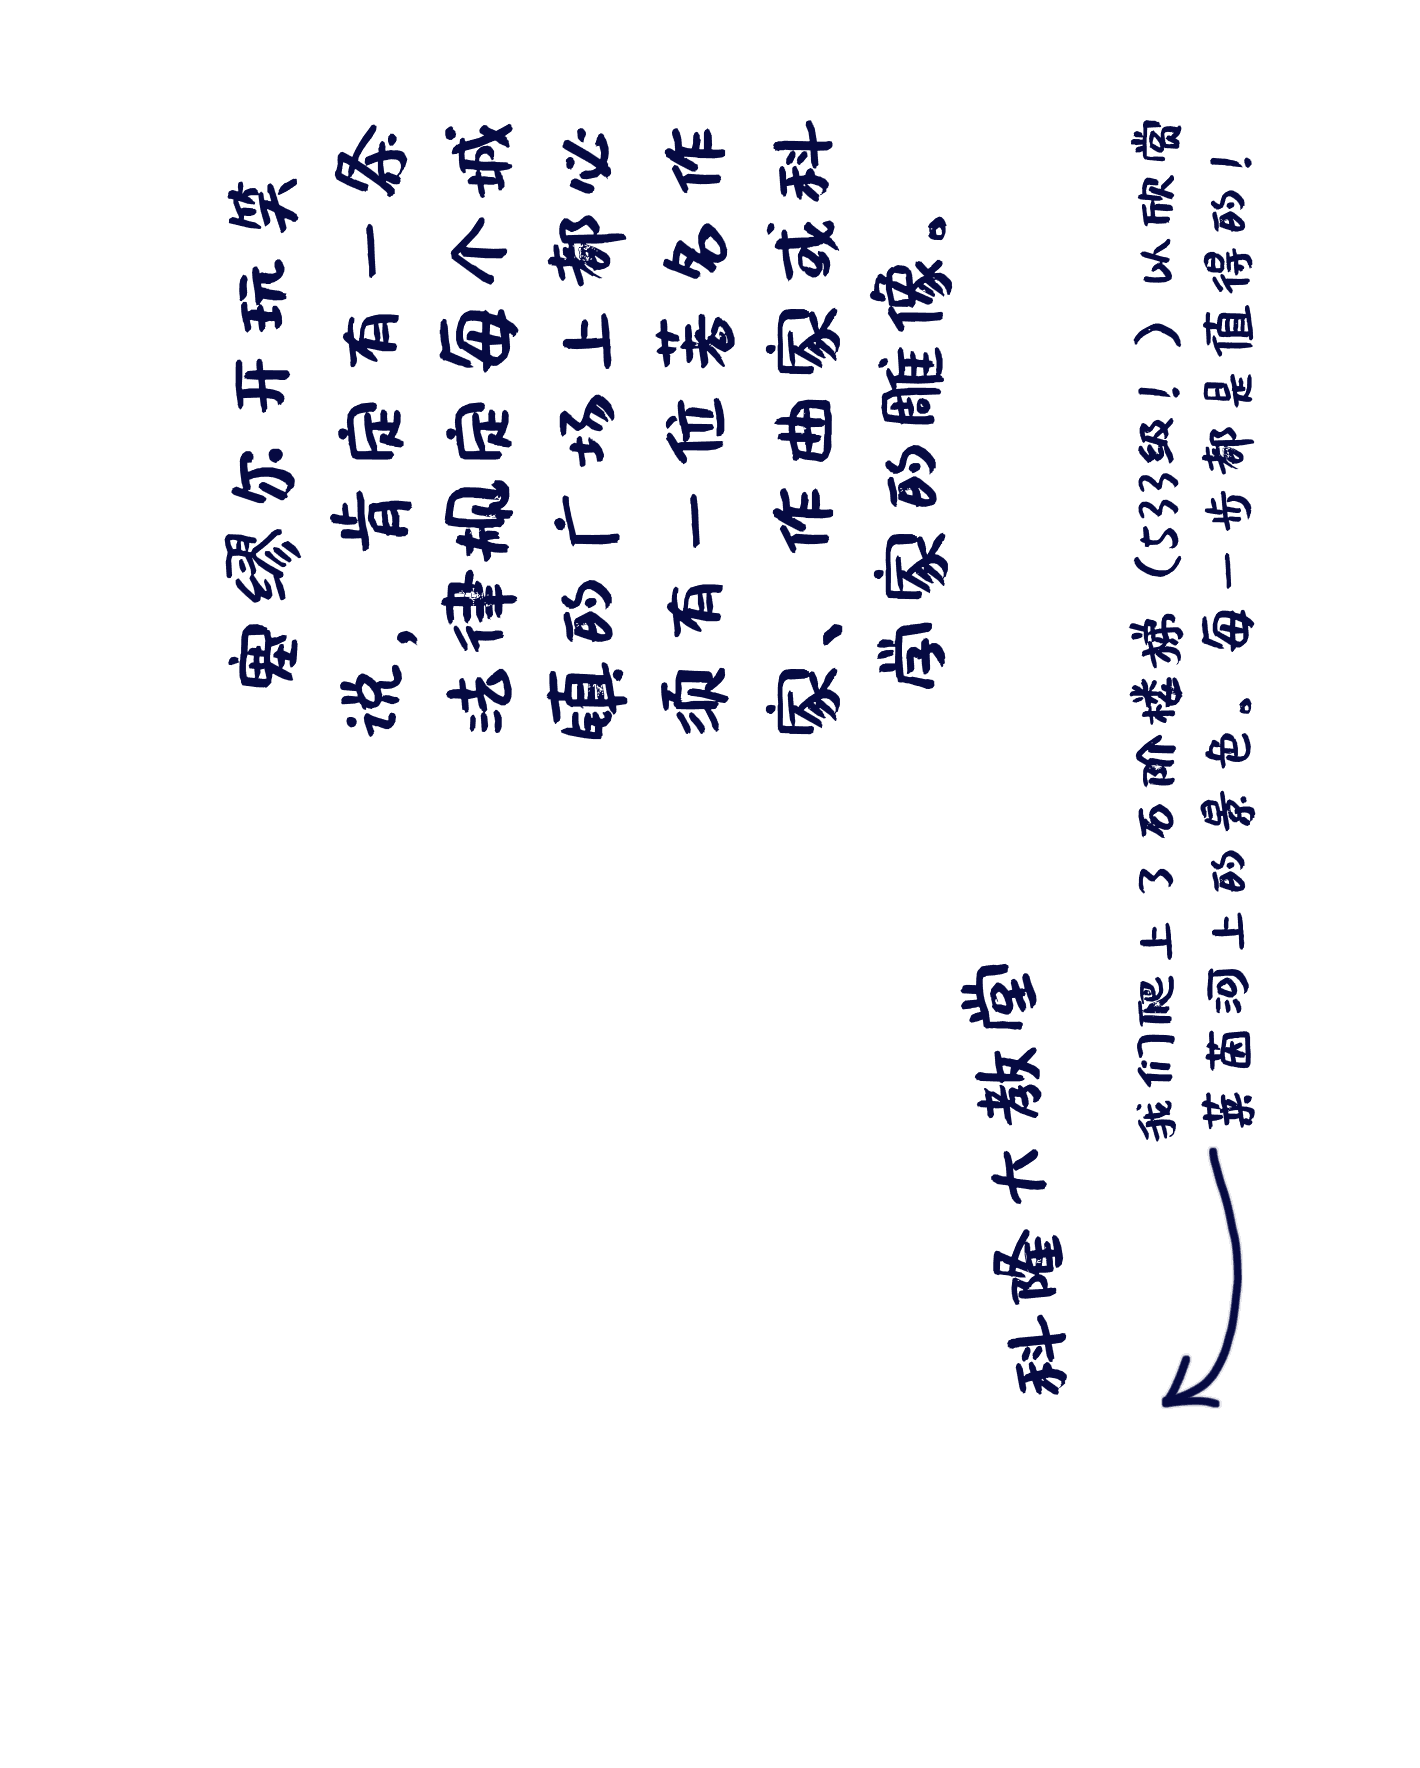 塞缪尔开玩笑
说，肯定有一条
法律规定每个城
镇的广场上都必
须有一位著名作
家、作曲家或科
学家的雕像。
科隆大教堂
我们爬上了石阶楼梯（533级！）以欣赏
莱茵河上的景色。每一步都是值得的！